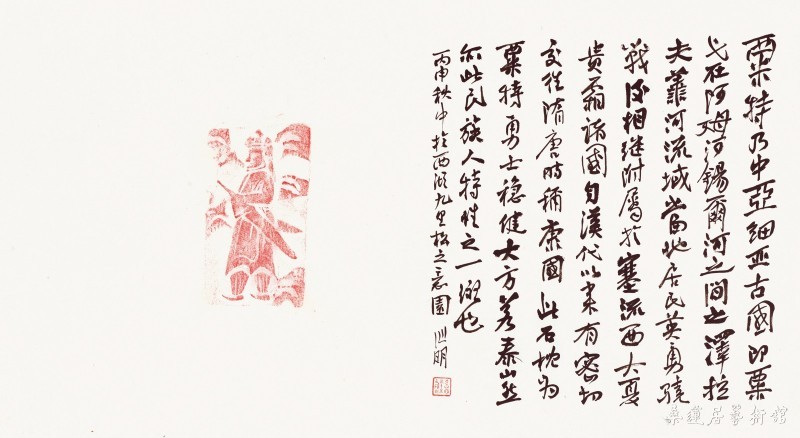 粟特乃中亞細亞古國即粟
弋在阿姆河錫爾河之間之澤拉
夫善河流域當地居民英勇驍
戰後相繼附屬於塞流西大夏
貴霜諸國自漢代以来有密切
交往隋唐時稱康國此石枕为
粟特勇士稳健大方若泰山然
亦此民族人特性之一也
丙申秋中於西湖九里松之意園 明
桑蓮居藝術館